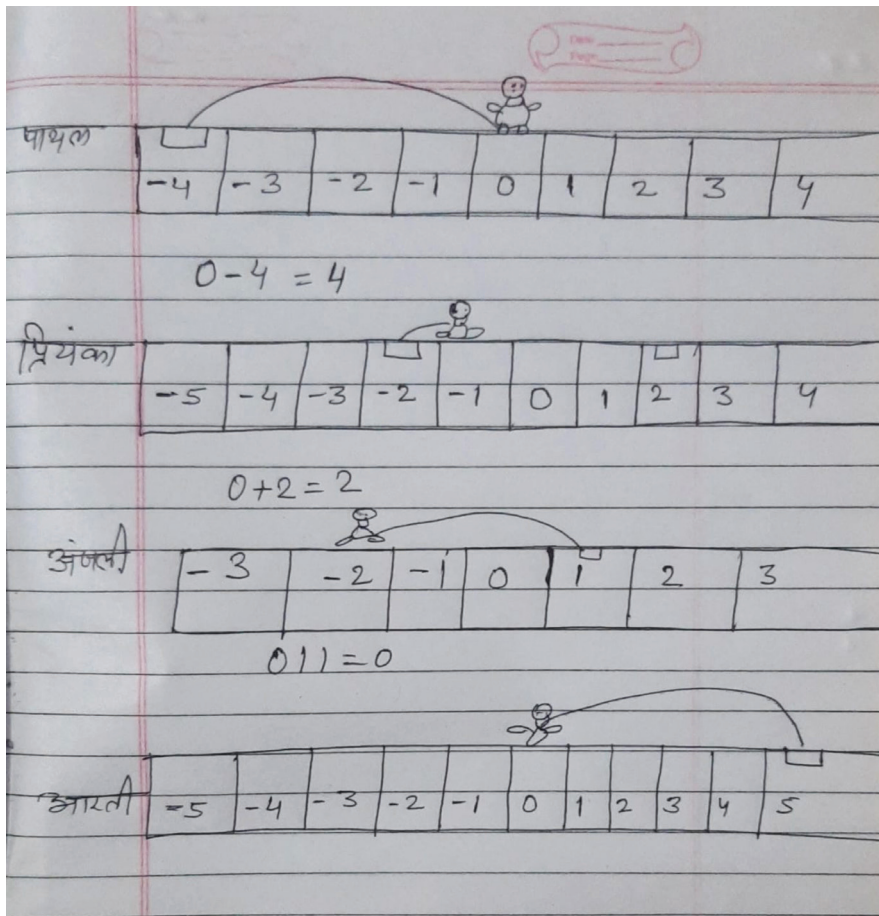 Date
Page
पायल
-4 -3 -2 -1 0 1 2 3 4
0-4 = 4
प्रियंका
-5 -4 -3 -2 -1 0 1 2 3 4
0+2=2
अंजली
-3 -2 -1 0 1 2 3
011=0
आरती
-5 -4 -3 -2 -1 0 1 2 3 4 5